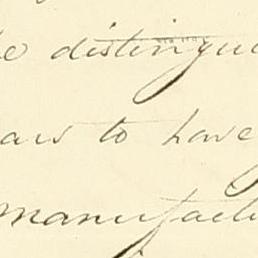 e distingui
ars to have
manufactu